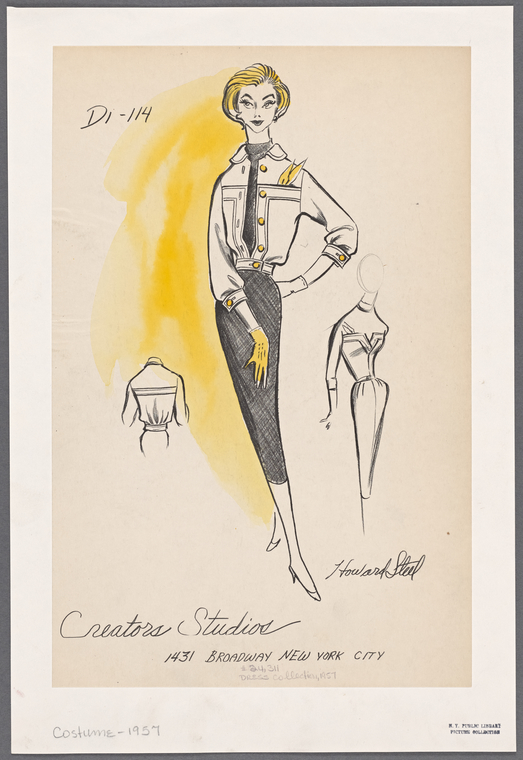 D1-114
Howard Steel
Creators Studios
1431 BROADWAY NEW YORK CITY
DRESS Collection, 1957
Costume - 1957
N. Y. PUBLIC LIBRARY
PICTURE COLLECTION